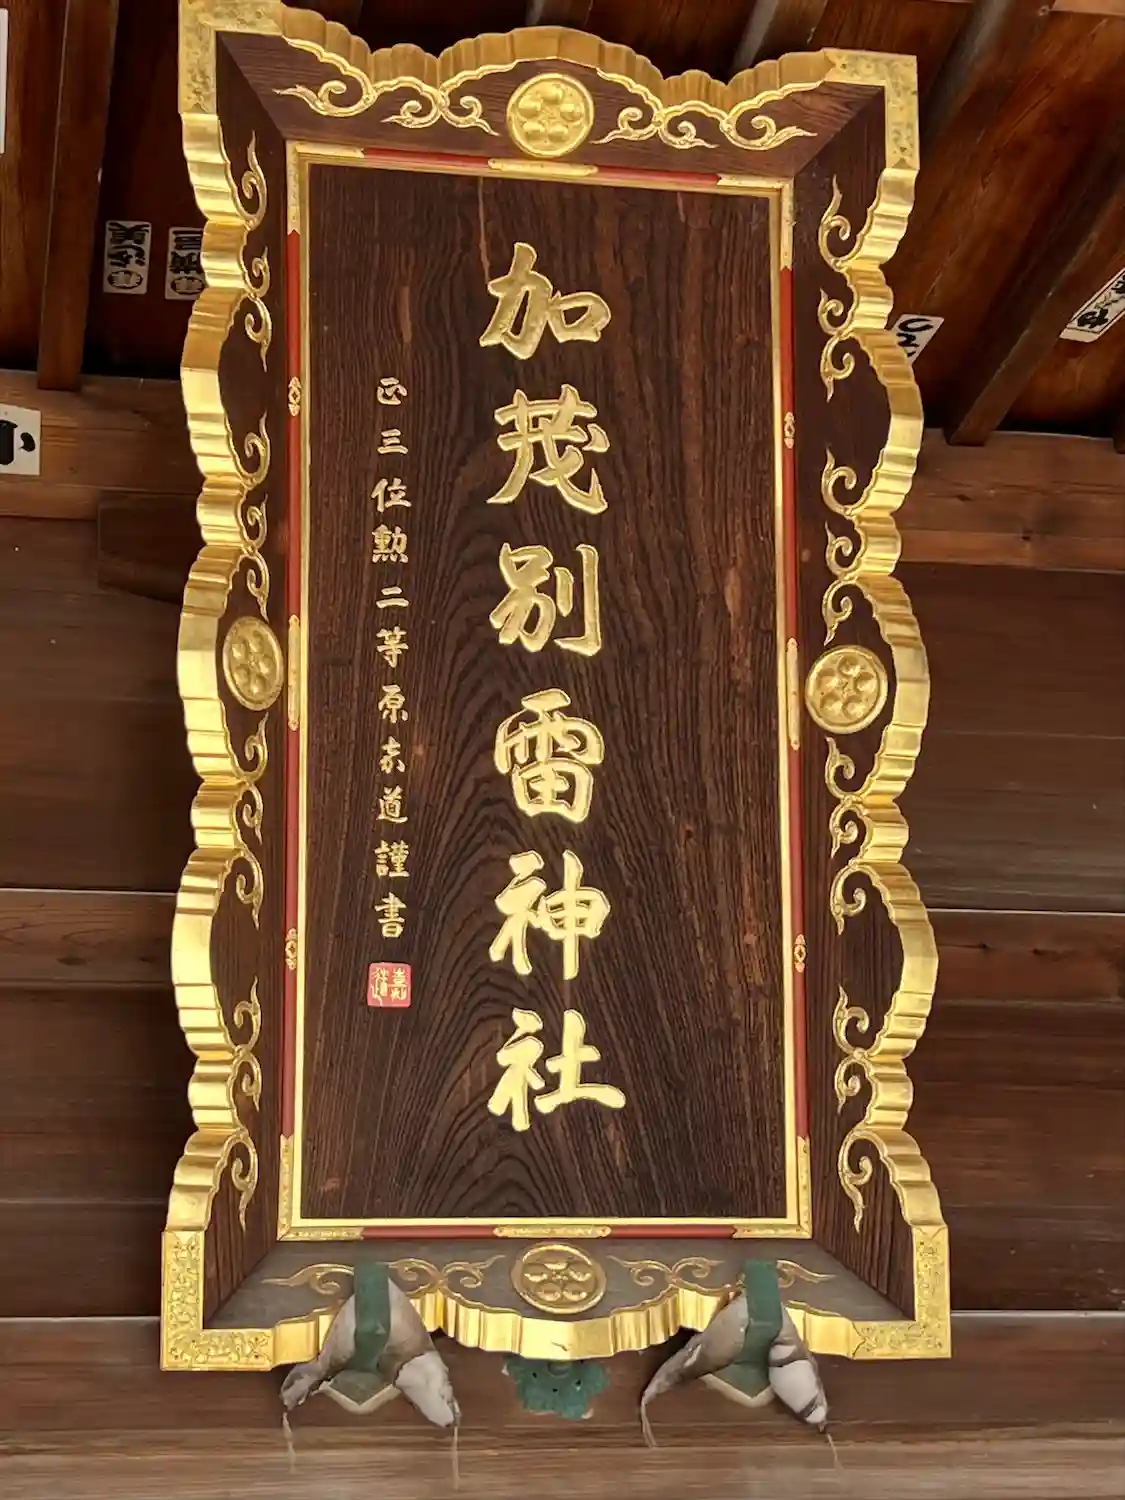 加茂別雷神社
正三位勲二等原嘉道謹書
嘉道